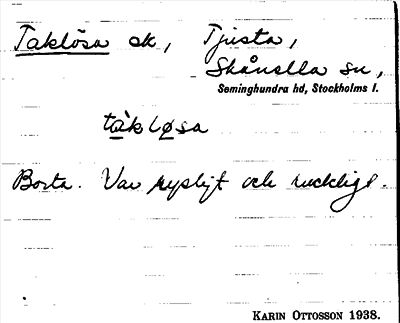 Taklösa sk, Tjusta,
Skånella sn,
Seminghundra hd, Stockholms l.
tàkløsa
Borta. Var rysligt och ruckligt.
KARIN OTTOSSON 1938.